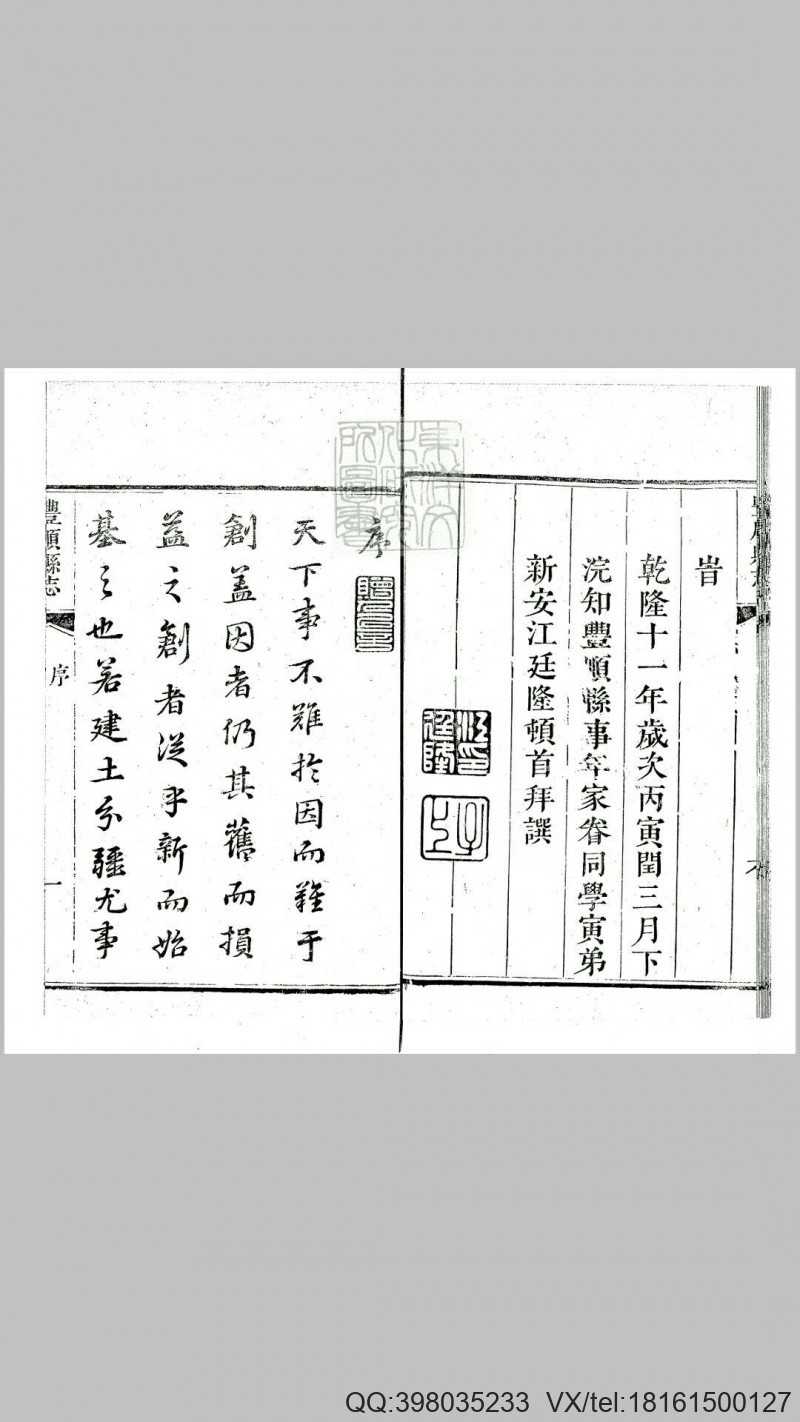 旹
乾隆十一年歲次丙寅閏三月下
浣知豐順縣事年家眷同學寅弟
新安江廷隆頓首拜譔
序
天下事不難於因而難于
創盖因者仍其舊而損
益之創者從乎新而始
基之也若建土分疆尤事
豐順縣志
序
一
QQ:398035233 VX/tel:18161500127